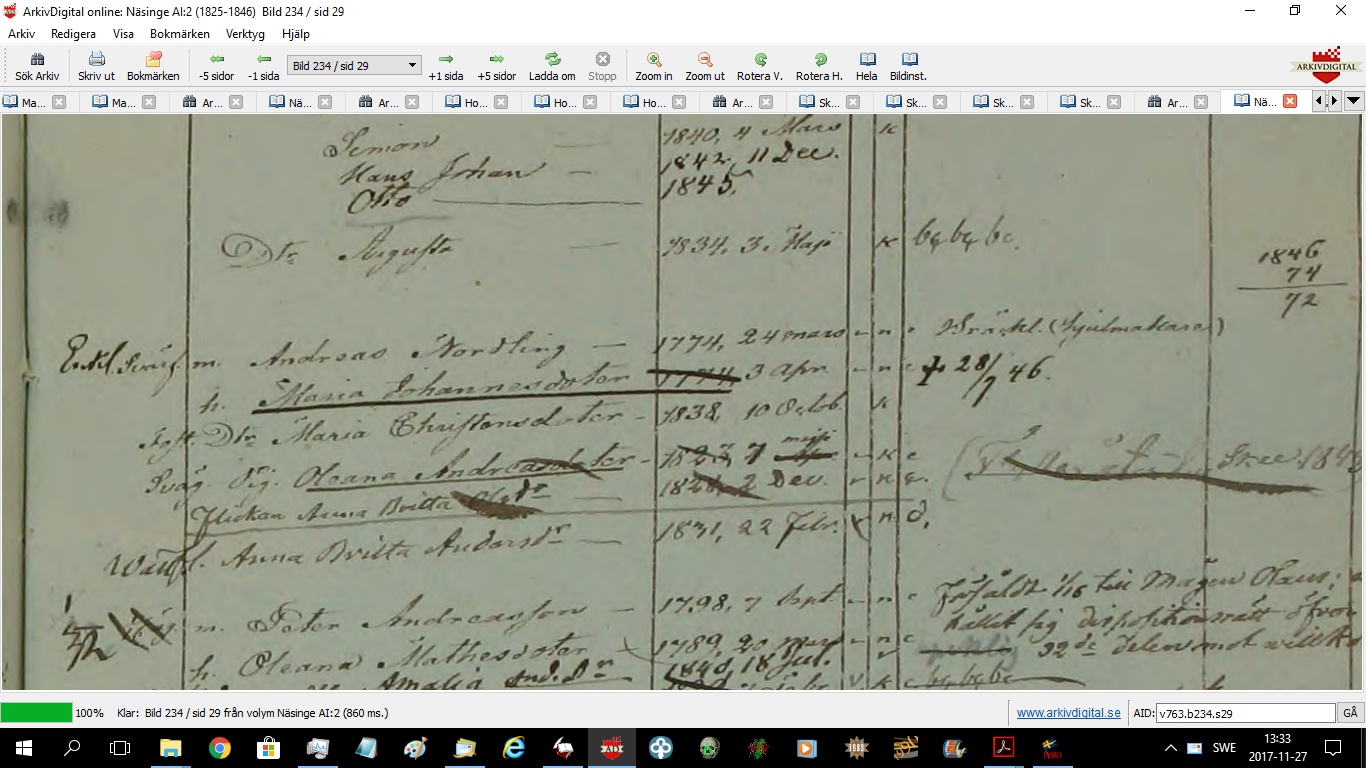 ArkivDigital online: Näsinge AI:2 (1825-1846) Bild 234 / sid 29
Arkiv Redigera Visa Bokmärken Verktyg Hjälp
Sök Arkiv Skriv ut Bokmärken -5 sidor -1 sida Bild 234 / sid 29 +1 sida +5 sidor Ladda om Stopp Zoom in Zoom ut Rotera V. Rotera H. Hela Bildinst. ARKIVDIGITAL
Ma... Ma... Ar... Nä... Ar... Ho... Ho... Ho... Ar... Sk... Sk... Sk... Sk... Ar... Nä...
Simon — 1840, 4 Mars k
Hans Johan — 1842, 11 Dec.
Otto — 1845.
Dtr Augusta — 1834, 3. Maji k bc, bc, bc.
1846
74
72
m. Andreas Nordling — 1774, 24 mars - n c (hjulmakare)
h. Maria Johannesdoter 1774 3 Apr. - n c † 28/7 46.
Dtr Maria Christensdoter - 1838, 10 Octob. k
Pig. Oleana Andreasdoter - 7 maji - k c
Flickan Anna Britta — 1828, 2 Dec. - k c.
Anna Britta Andersdr — 1831, 22 Febr. n d.
m. Peter Andreasson — 1798, 7 Sept - n c 1/16 till Mågen Olaus;
h. Oleana Mathesdoter 1789, 20 - n c hållit sig dispositionsrätt öfver
Amalia And.dr 1840, 18 Jul. 32de delen mot
100% Klar: Bild 234 / sid 29 från volym Näsinge AI:2 (860 ms.) www.arkivdigital.se AID: v763.b234.s29 GÅ
SWE 13:33
2017-11-27